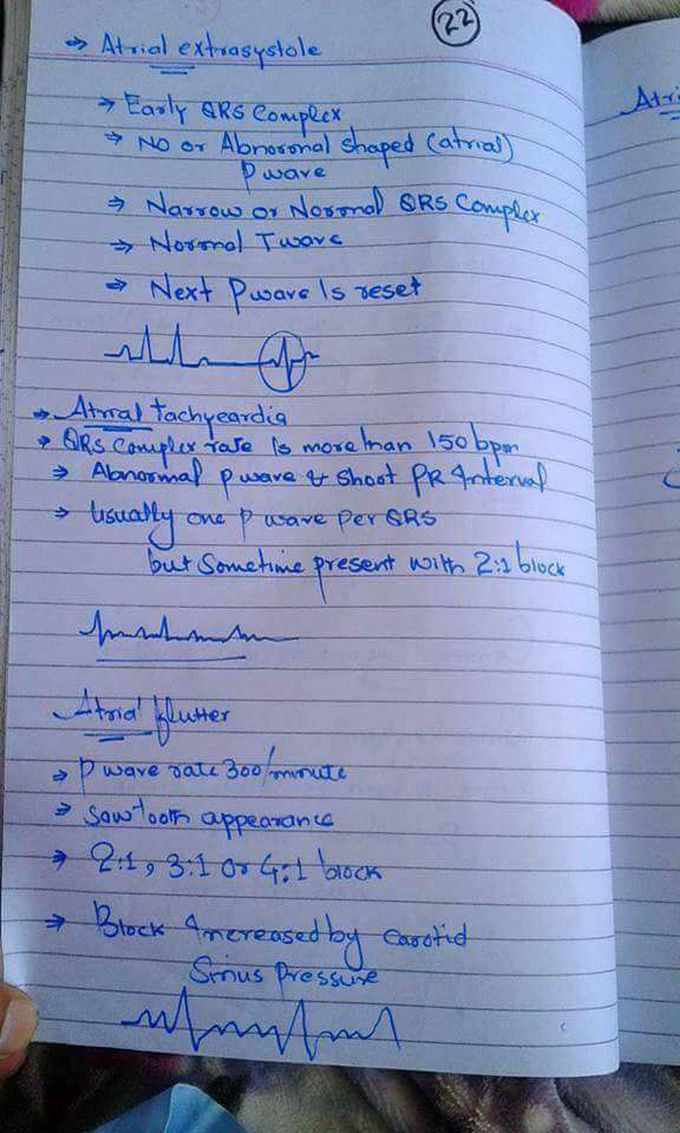 22
⇒ Atrial extrasystole
→ Early QRS Complex
⇒ No or Abnormal shaped (atrial)
P wave
⇒ Narrow or Normal QRS Complex
⇒ Normal T wave
⇒ Next P wave Is reset
⇒ Atrial tachycardia
⇒ QRS Complex rate Is more than 150 bpm
⇒ Abnormal P wave & short PR Interval
⇒ Usually one P wave Per QRS
but Sometime present with 2:1 block
Atrial flutter
⇒ P wave rate 300/minute
⇒ Sawtooth appearance
⇒ 2:1, 3:1 or 4:1 block
⇒ Block Increased by Carotid
Sinus Pressure
Atri